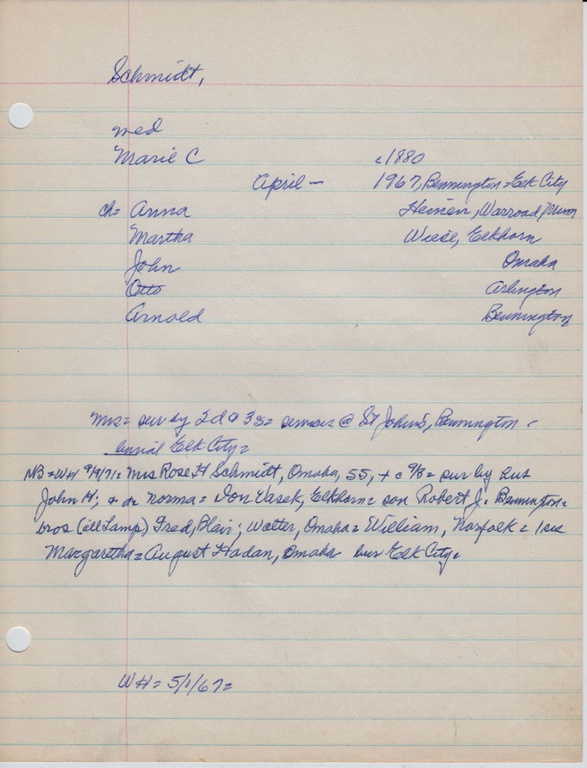 Schmidt,
med
Marie C c1880
April — 1967, Bennington = Elk City
ch= Anna Heinen, Warroad, Minn
Martha Wiese, Elkhorn
John Omaha
Otto Arlington
Arnold Bennington
Mrs = sur by 2d & 3s = services @ St John's, Bennington =
burial Elk City =
NB = WH 9/9/71 = Mrs Rose H Schmidt, Omaha, 55, + c 9/8 = sur by hus
John H; + da Norma = Don Vasek, Elkhorn = son Robert J. Bennington =
bros (all Lamp) Fred, Blair; Walter, Omaha = William, Norfolk = 1 sis
Margaretha = August Hadan, Omaha bur Elk City =
WH = 5/1/67 =